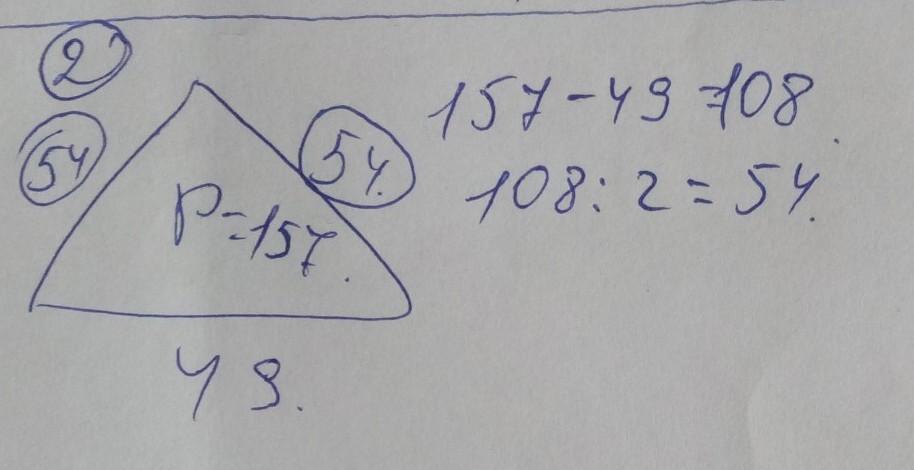 2
54
54.
P=157.
49.
157-49=108.
108:2=54.